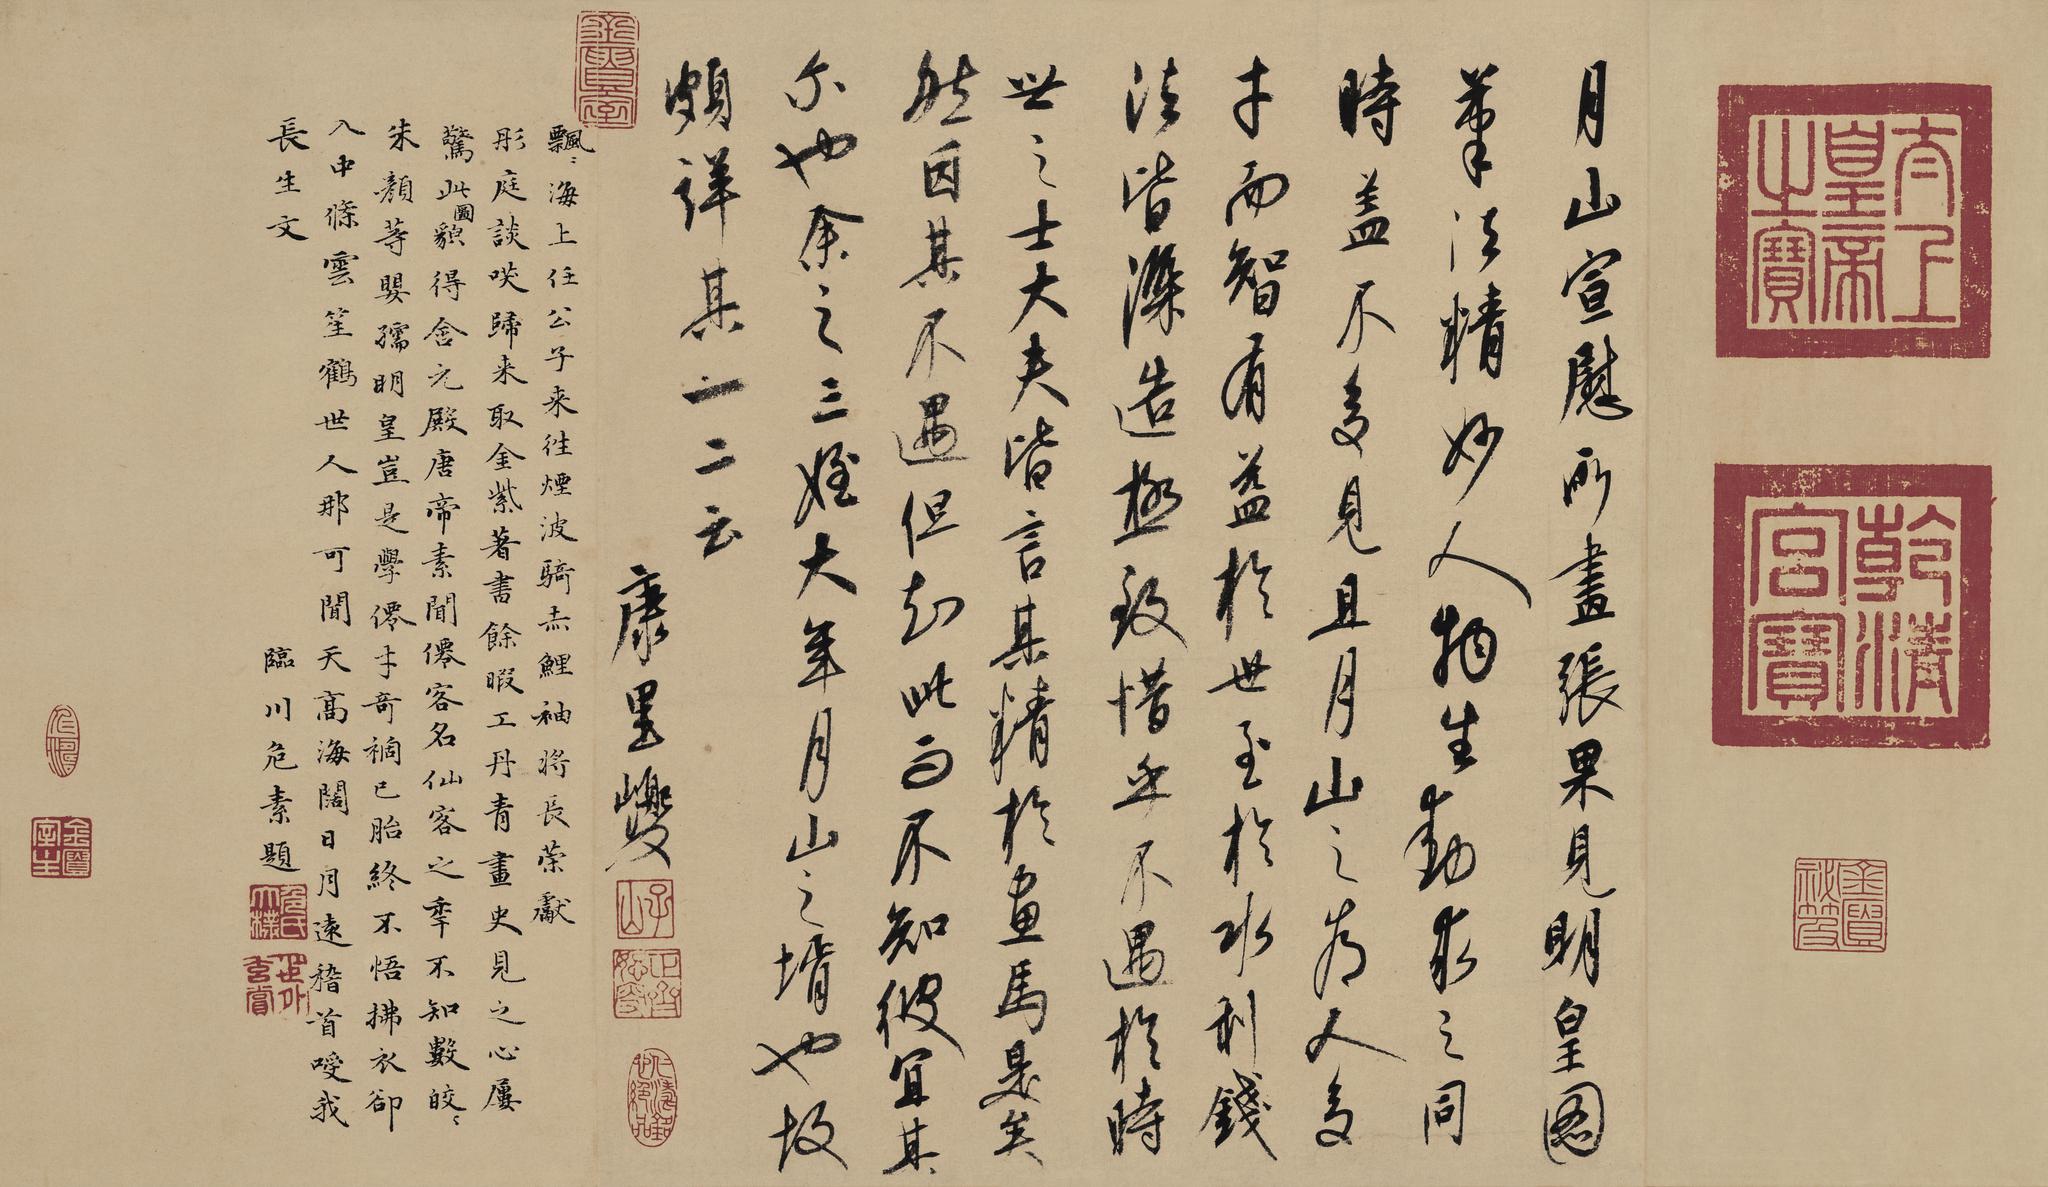 太上
皇帝
之寶
乾清
宮寶
月山宣慰所畫張果見明皇圖
筆法精妙人物生動求之同
時蓋不多見且月山之為人多
才而智有益於世至於水利錢
法皆深造極致惜乎不遇於時
世之士大夫皆言其精於畫馬是矣
然因其不遇但知此而不知彼宜其
尔也余之三姪大年月山之壻也故
頗詳其一二云
康里巎
子山
飄〻海上任公子来往煙波騎赤鯉袖将長策獻
彤庭談咲歸来取金紫著書餘暇工丹青畫史見之心屢
驚此圖貌得含元殿唐帝素聞僊客名仙客之季不知數皎〻
朱顏等嬰孺明皇豈是學僊才奇禍已胎終不悟拂衣卻
入中條雲笙鶴世人那可聞天高海闊日月遠稽首嗳我
長生文
臨川危素題
危氏
太樸